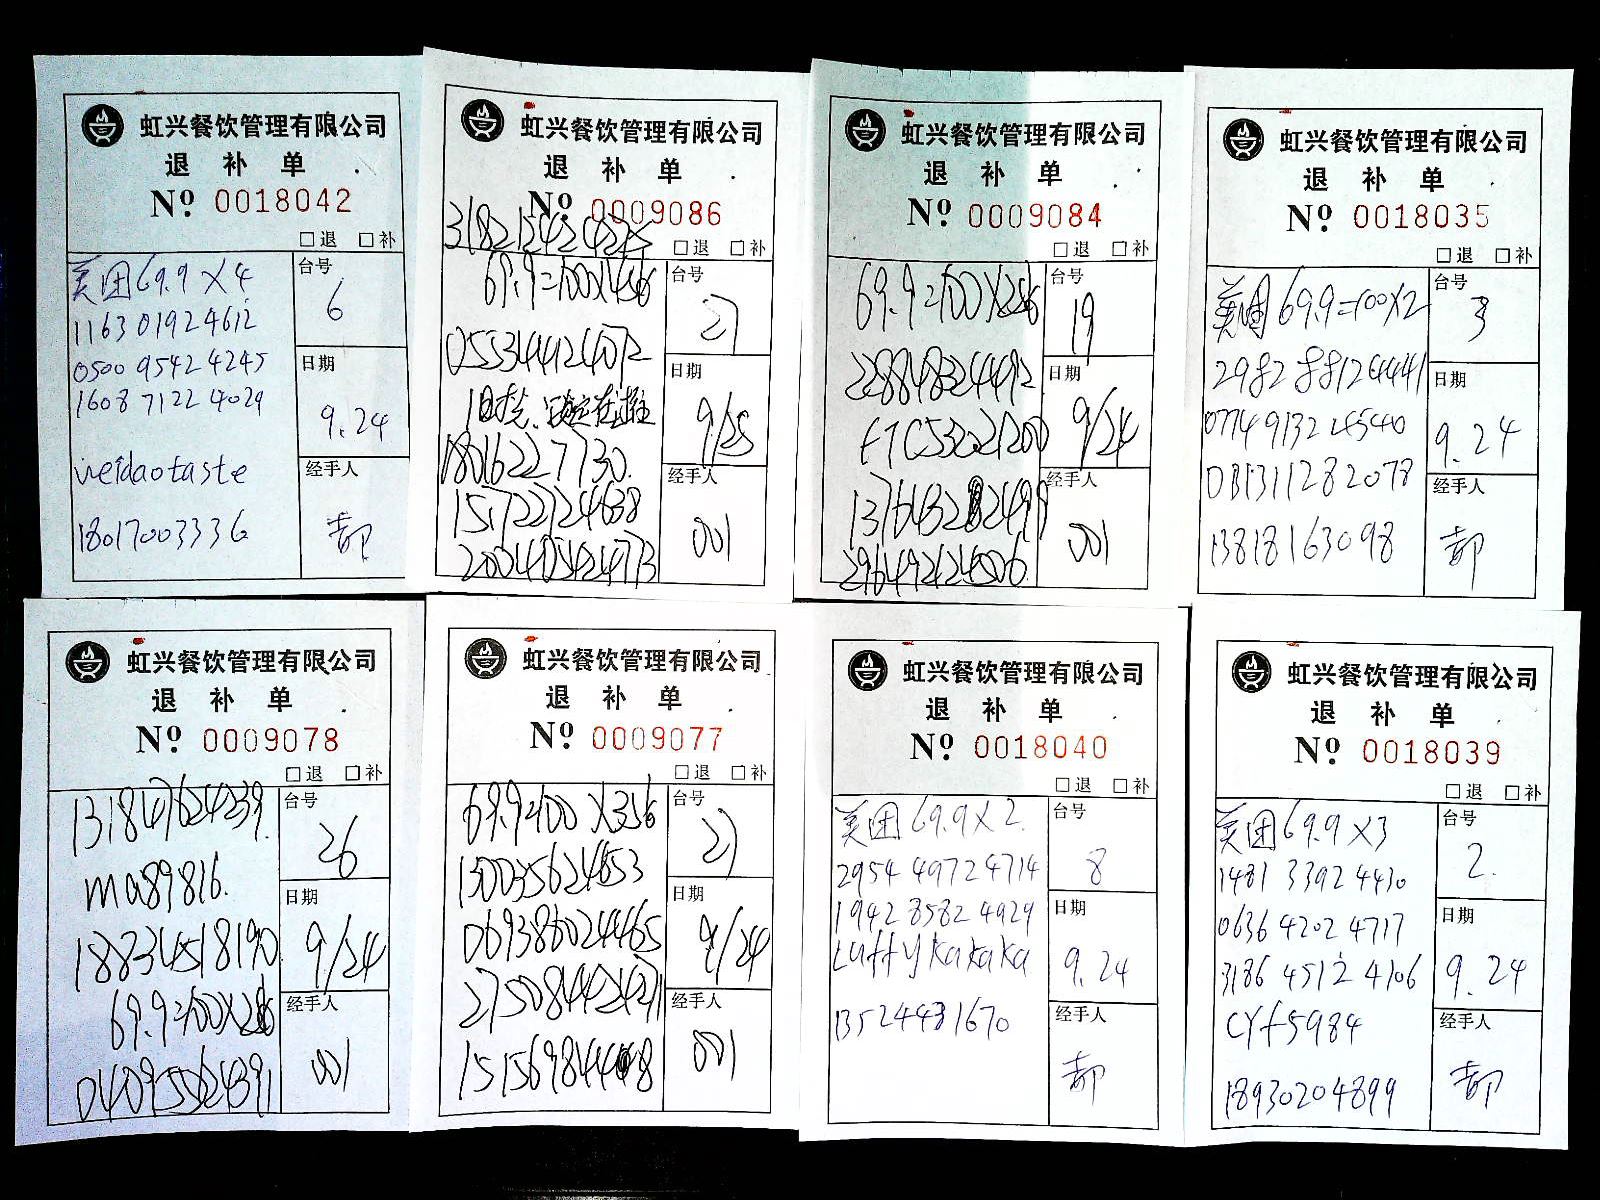 虹兴餐饮管理有限公司
退 补 单
Nº 0018042
□退 □补
美团69.9×4
台号
6
1163 01924612
0500 9542 4245
日期
1608 7122 4029
9.24
weidaotaste
经手人
18017003336
郝
虹兴餐饮管理有限公司
退 补 单
Nº 0009086
318212424275
□退 □补
69.9=100×456
台号
27
055344124072
日期
9/25
18016227730.
经手人
157221724638
001
200440424773
虹兴餐饮管理有限公司
退 补 单
Nº 0009084
□退 □补
69.9=100×286
台号
19
228848324492
日期
9/24
经手人
001
296492424506
虹兴餐饮管理有限公司
退 补 单
Nº 0018035
□退 □补
美团69.9=100×2
台号
3
2982 88124441
日期
0774 9132 4540
9.24
DB1311282078
经手人
13818163098
郝
虹兴餐饮管理有限公司
退 补 单
Nº 0009078
□退 □补
台号
26
ma89816.
日期
18834518190
9/24
69.9=100×286
经手人
040955624391
001
虹兴餐饮管理有限公司
退 补 单
Nº 0009077
□退 □补
69.9=100×356
台号
27
130035624653
日期
069386024465
9/24
275084424271
经手人
001
虹兴餐饮管理有限公司
退 补 单
Nº 0018040
□退 □补
美团69.9×2
台号
8
2954 4972 4714
1942 8582 4929
日期
Luffykakaka
9.24
经手人
13524431670
郝
虹兴餐饮管理有限公司
退 补 单
Nº 0018039
□退 □补
美团69.9×3
台号
2.
1481 3392 4430
0636 4202 4717
日期
3186 4512 4106
9.24
CYf5984
经手人
18930204899
郝